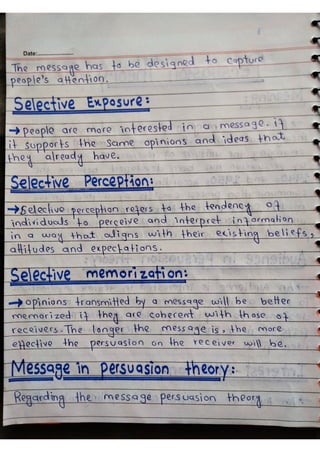 Date:
The message has to be designed to capture
people's attention.
Selective Exposure:
→ People are more interested in a message. if
it supports the same opinions and ideas that
they already have.
Selective Perception:
→ Selective perception refers to the tendency of
individuals to perceive and interpret information
in a way that aligns with their existing beliefs,
attitudes and expectations.
Selective memorization:
→ opinions transmitted by a message will be better
memorized if they are coherent with those of
receivers. The longer the message is, the more
effective the persuasion on the receiver will be.
Message in persuasion theory:
Regarding the message persuasion theory